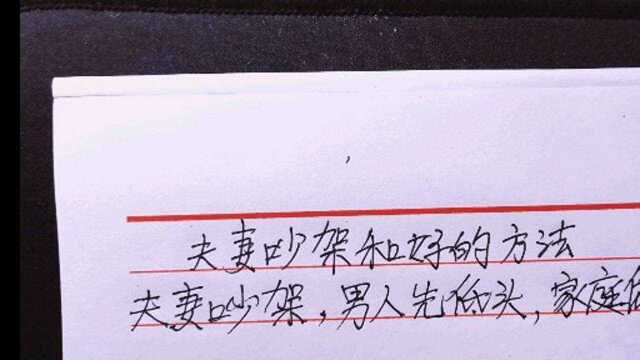 夫妻吵架和好的方法
夫妻吵架,男人先低头,家庭